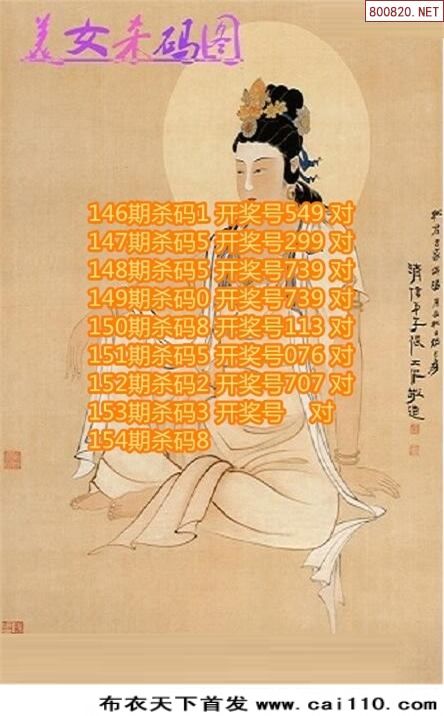 800820.NET
美女杀码图
146期杀码1 开奖号549 对
147期杀码5 开奖号299 对
148期杀码5 开奖号739 对
149期杀码0 开奖号739 对
150期杀码8 开奖号113 对
151期杀码5 开奖号076 对
152期杀码2 开奖号707 对
153期杀码3 开奖号 对
154期杀码8
布衣天下首发 www.cai110.com